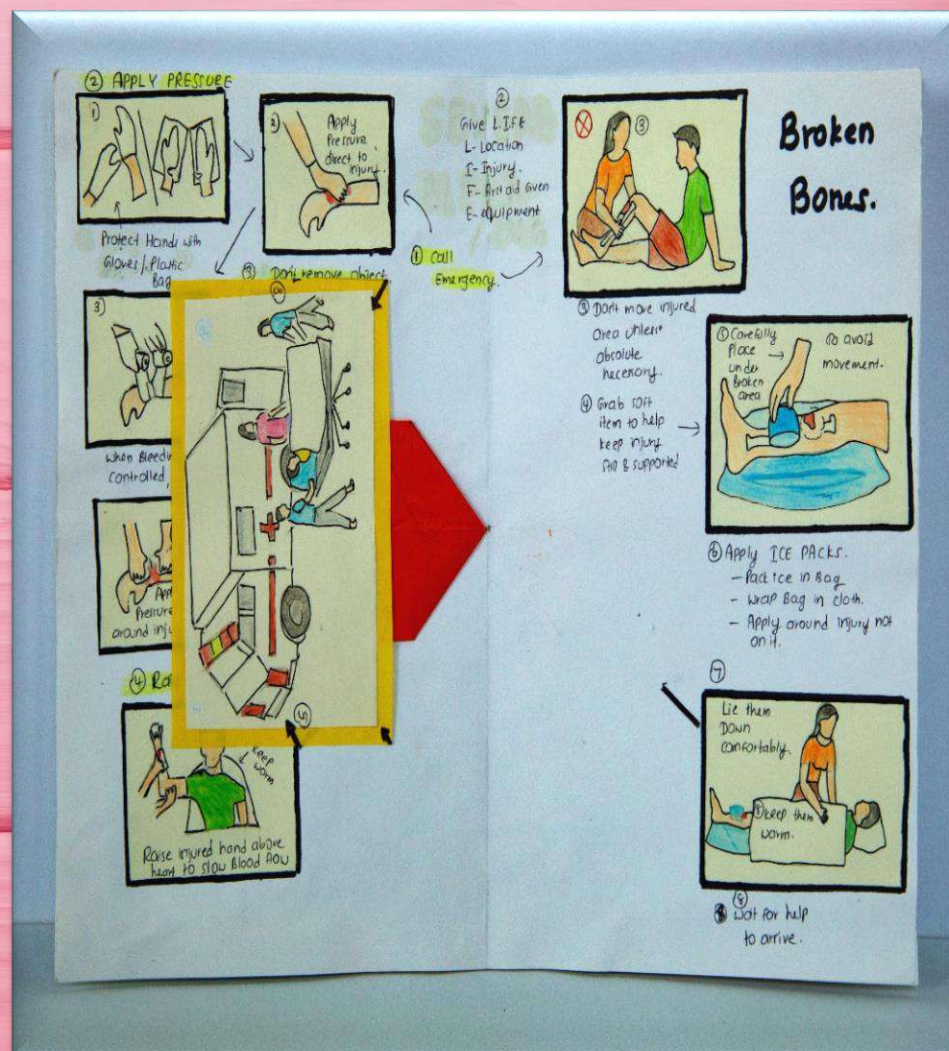 ② APPLY PRESSURE
1)
Protect Hands with
Gloves/Plastic
Bag
2)
Apply
Pressure
direct to
injury.
③ Don't remove object
3)
When Bleedi
controlled,
App
Pressure
around inju
④ Ra
keep
warm
Raise injured hand above
heart to slow Blood flow
① Call
Emergency.
②
Give L.I.F.E
L- Location
I- Injury.
F- first aid Given
E- equipment
Broken
Bones.
③
③ Don't move injured
area unless
absolute
necenary.
④ Grab soft
item to help
keep injury
still & supported
⑤ Carefully
Place
under
Broken
area
to avoid
movement.
⑥ Apply ICE PACKS.
- Pack ice in Bag
- Wrap Bag in cloth.
- Apply around injury not
on it.
⑦
Lie them
Down
comfortably.
keep them
warm.
⑧
Wait for help
to arrive.